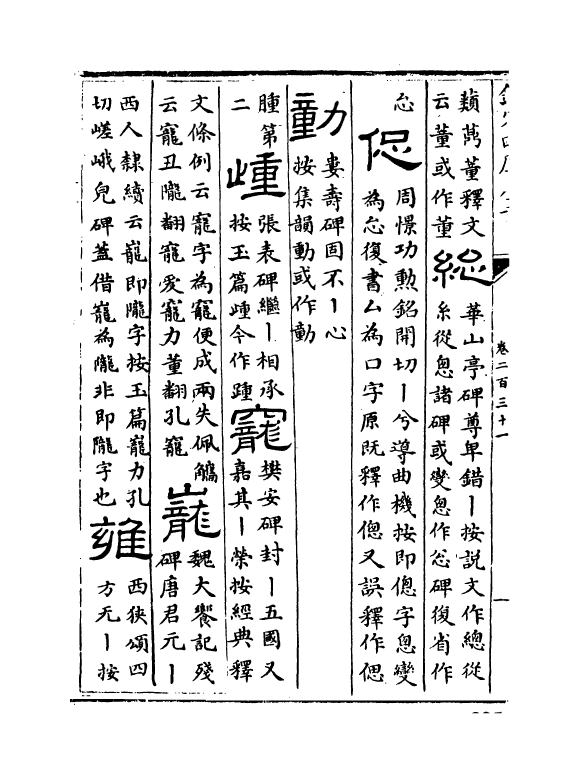 蘱萭董釋文
云董或作董
総
華山亭碑尊卑錯丨按說文作總從
糸從悤諸碑或變悤作忩碑復省作
忩
周憬功勲銘開切丨兮導曲機按即偬字悤變
為忩復書厶為口字原既釋作偬又誤釋作偲
動
婁壽碑固不丨心
按集韻動或作動
腫第
二
歱
張表碑繼丨相承
按玉篇歱今作踵
竉
樊安碑封丨五國又
嘉其丨榮按經典釋
文條例云寵字為竉便成兩失佩觿
云寵丑隴翻寵愛竉力董翻孔竉
巃
魏大饗記殘
碑唐君元丨
西人隸續云巃即隴字按玉篇巃力孔
切嵯峨皃碑蓋借巃為隴非即隴字也
雍
西狹頌四
方无丨按
卷二百三十一